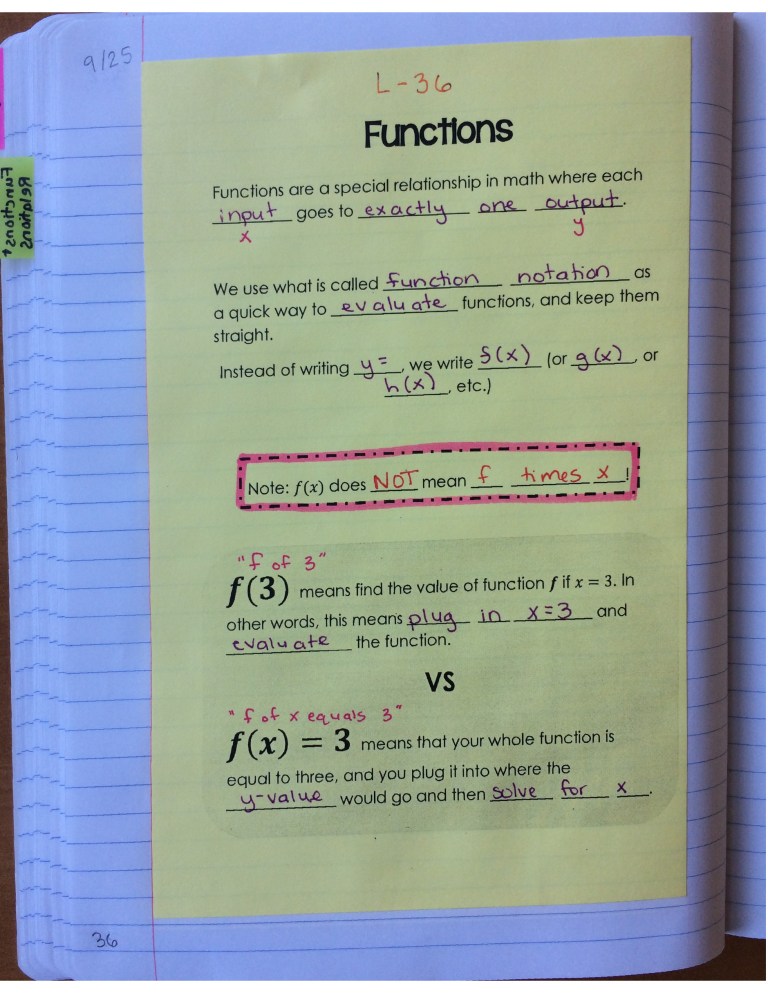 9/25
L-36
Functions
Functions are a special relationship in math where each
input goes to exactly one output.
x y
We use what is called function notation as
a quick way to evaluate functions, and keep them
straight.
Instead of writing y=, we write f(x) (or g(x), or
h(x), etc.)
Note: f(x) does NOT mean f times x!
"f of 3"
f(3) means find the value of function f if x = 3. In
other words, this means plug in x=3 and
evaluate the function.
VS
"f of x equals 3"
f(x) = 3 means that your whole function is
equal to three, and you plug it into where the
y-value would go and then solve for x.
36
Relations+
Functions